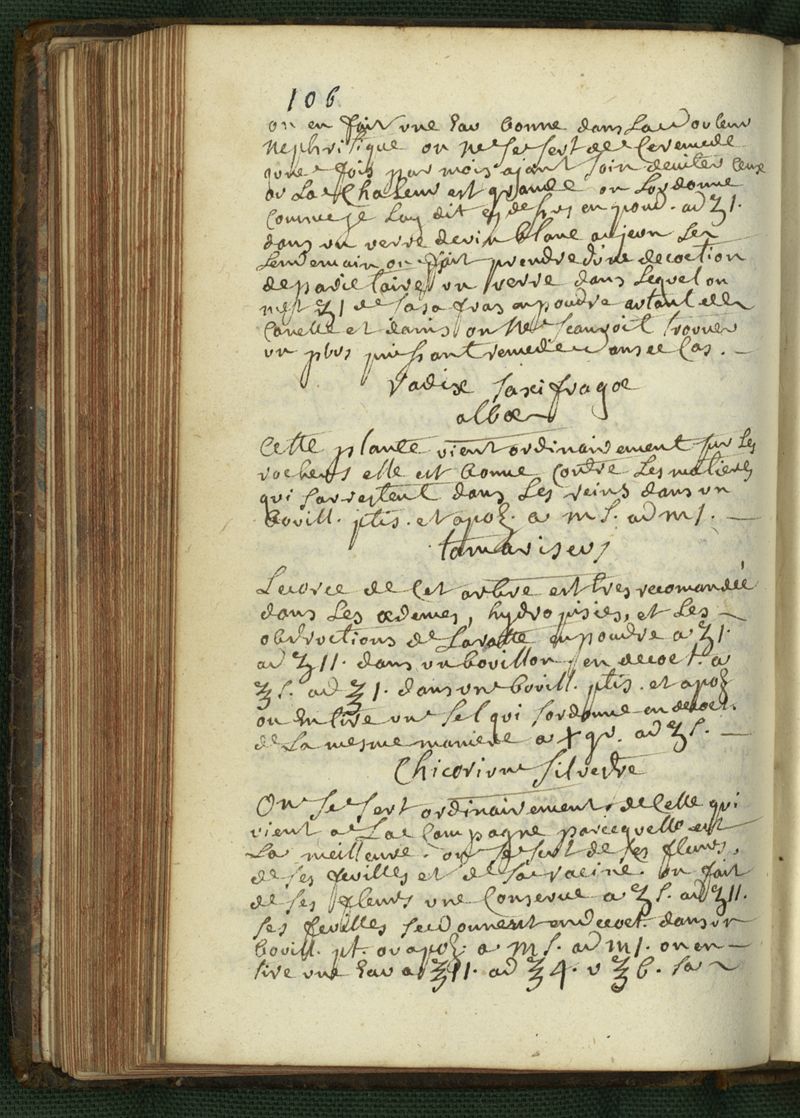 106
on en fait vne Eau bonne dans La douleur
Nephritique on ne se sert de Ce remede
qune fois par mois ajant soin deuiter Ceux
ou La Chaleur est grande on Lordonne
Comme je Lay dit cy desus en poud. ad ʒ1.
dans vn verre de vin blanc a jeun Le
Lendemain on fait prendre dvne decoction
de parietaire vn verre dans Lequel on
met ʒ1 de sasafras en poudre autant de
Canelle et danis on ne scauroit trouuer
vn plus puissant remede dans ce Cas. —
Radix saxifragœ
albœ
Cette plante vient ordinairement sur Les
rochers elle est bonne Contre Les matieres
qui sarrestent dans Les reins dans vn
bouill. ptis. et apoz. a m s. ad m1. —
tamariscus
Lecorce de Cet arbre est tres recomandée
dans Les œdemes, hydropisies, et Les
obstructions de La ratte en poudre a ʒ1.
ad ʒ11. dans vn bouillon, en decoct. a
℥ s. ad ℥1. dans vn bouill. ptis. et apoz
on En tire vn sel qui sordonne en decoct.
de La mesme maniere a x gr. ad ʒ s. —
Chicorium silvestre
On se sert ordinairement de Celle qui
vient a La Campagne parcequelle est
La meilleure. on se sert de ses fleurs,
de ses feuilles et de sa racine. on fait
de ses fleurs vne Conserue a ℥ s. ad ℥11.
ses feuilles se donnent en decoct. dans vn
bouill. pt. ou apoz. a m s. ad m1. on en
tire vne Eau a ℥11. ad ℥4. v ℥6. sa